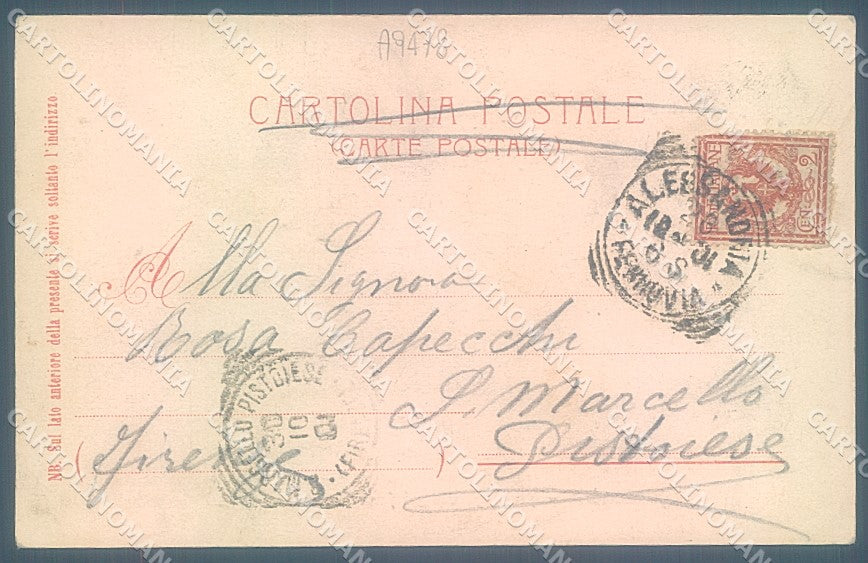 A9478
CARTOLINA POSTALE
(CARTE POSTALE)
NB. Sul lato anteriore della presente si scrive soltanto l'indirizzo
ALESSANDRIA
Alla Signora
Rosa Capecchi
S. Marcello
Pistoiese
(Firenze)
MARCELLO PISTOIESE
30
10
01
(FIR
CARTOLINOMANIA